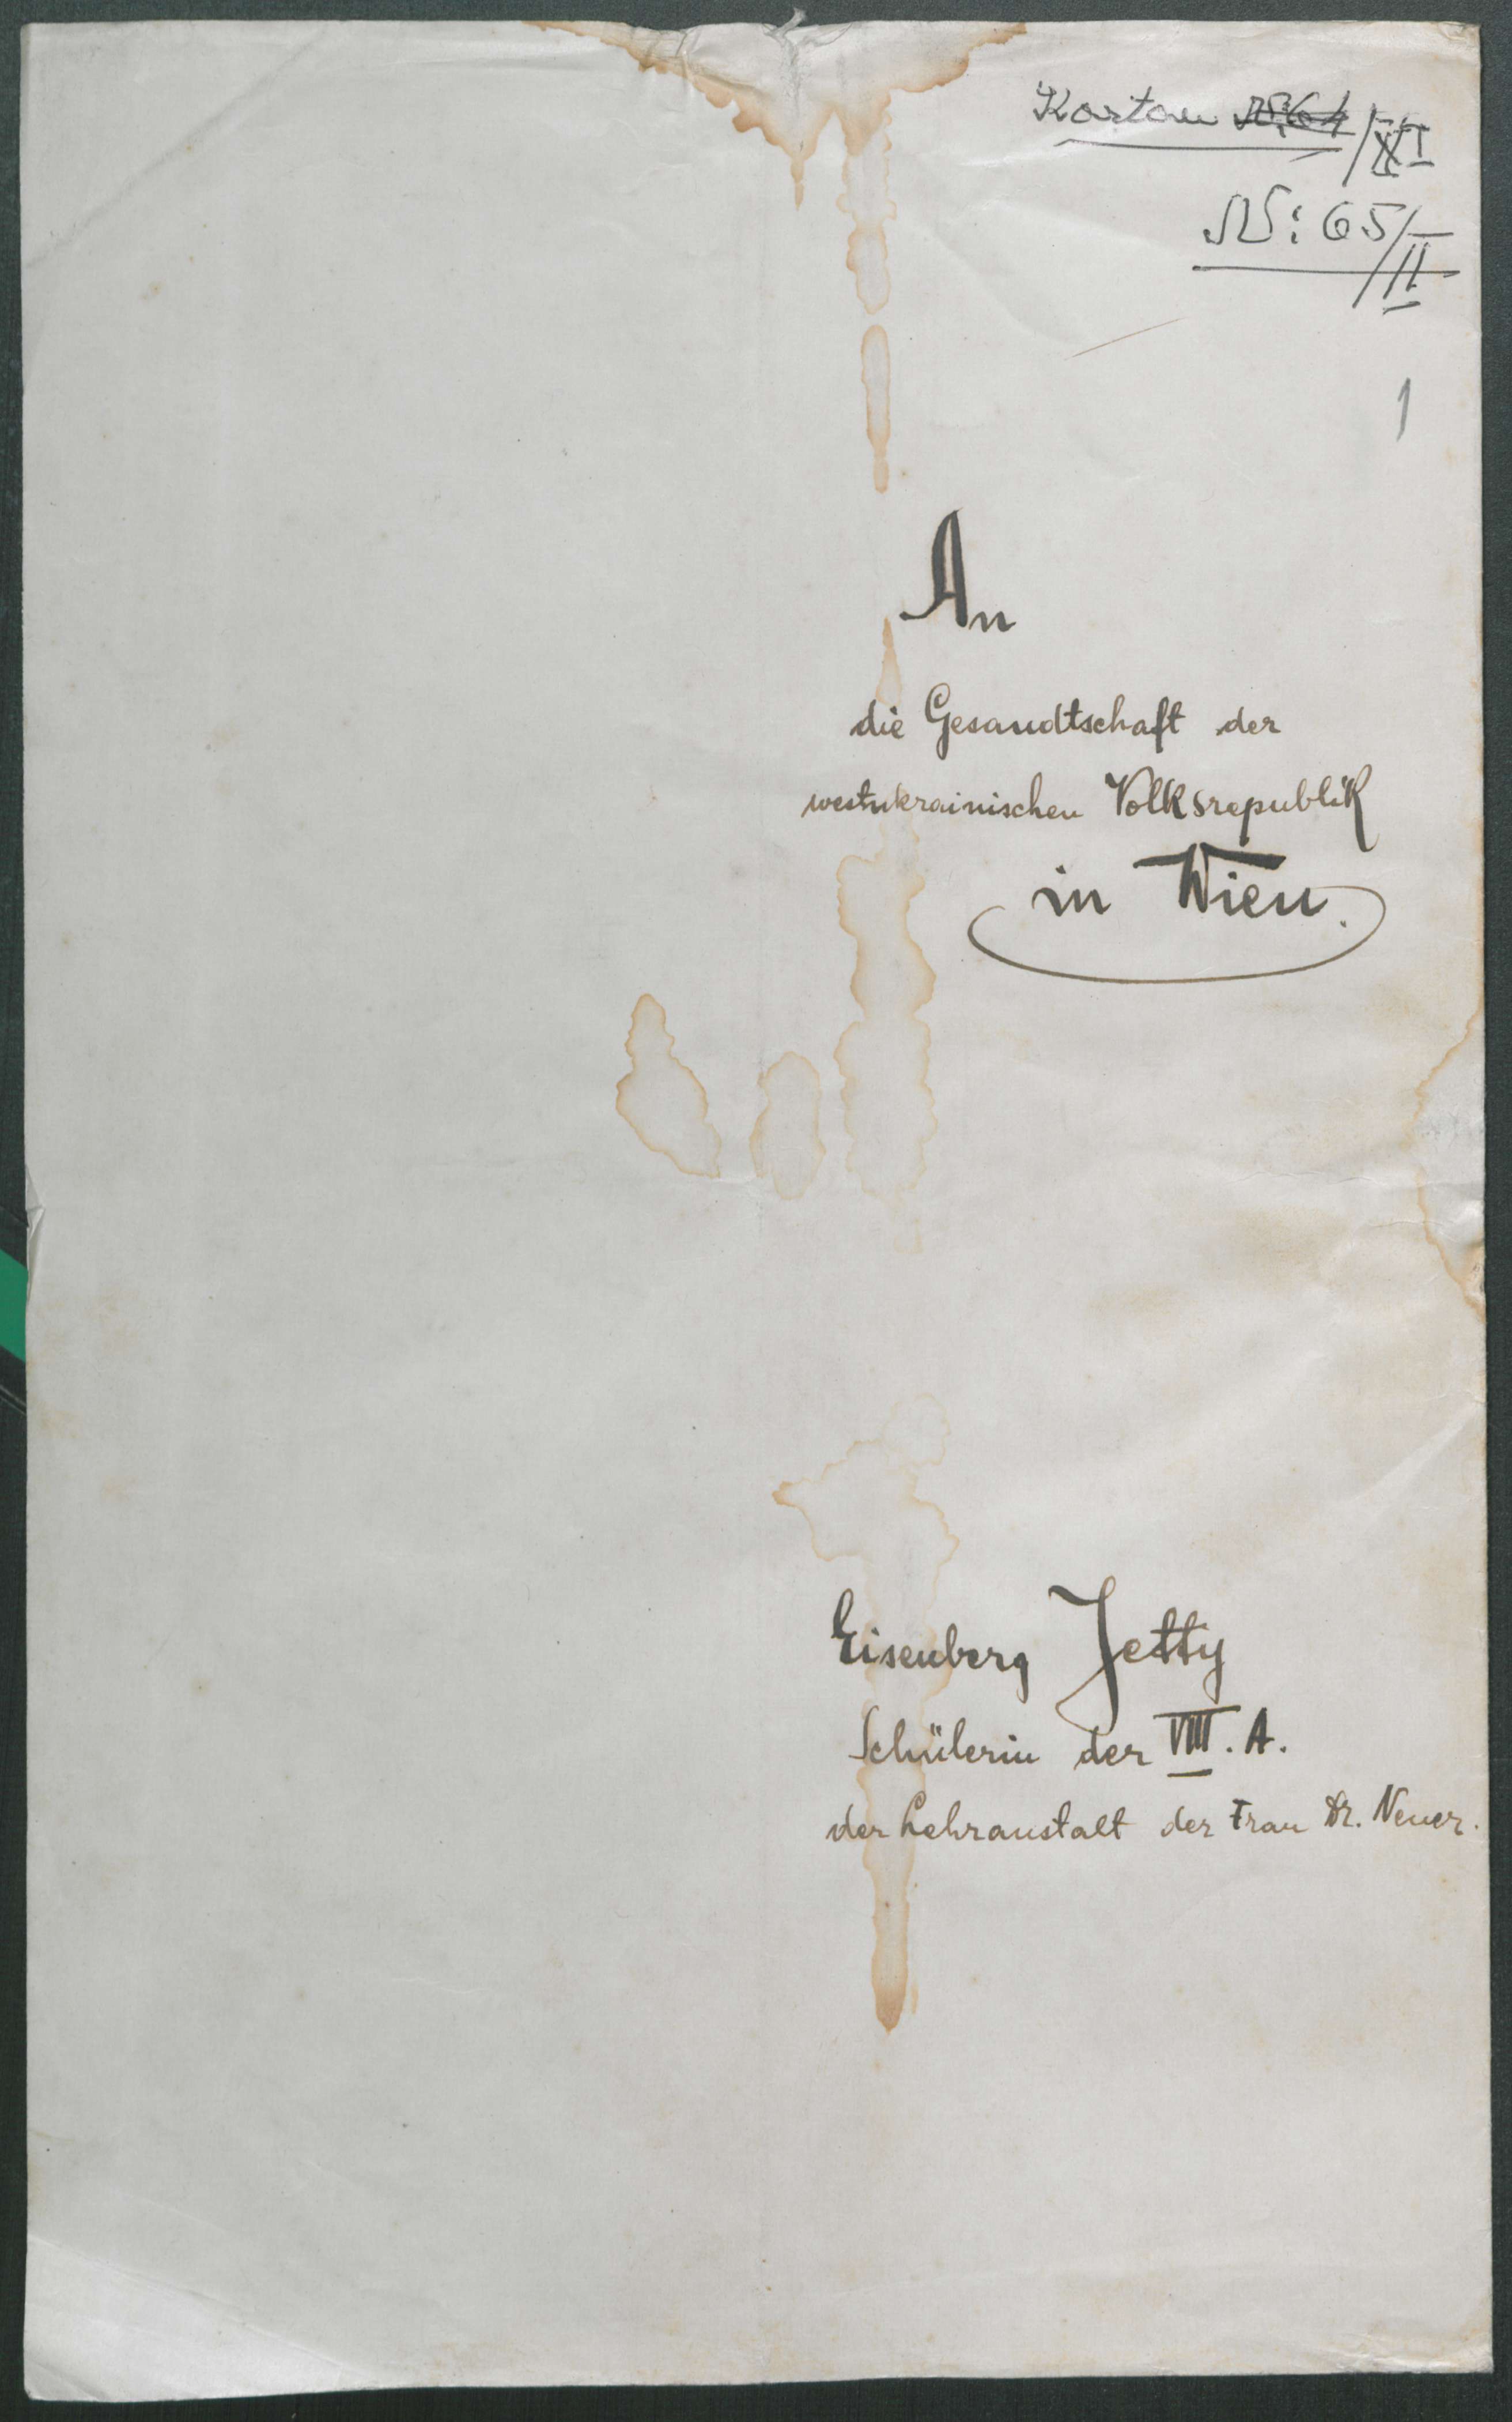 Karton N: 64 /XI
N: 65/II
1
An
die Gesandtschaft der
westukrainischen Volksrepublik
in Wien.
Eisenberg Jetty
Schülerin der VIII. A.
der Lehranstalt der Frau Dr. Neuer.